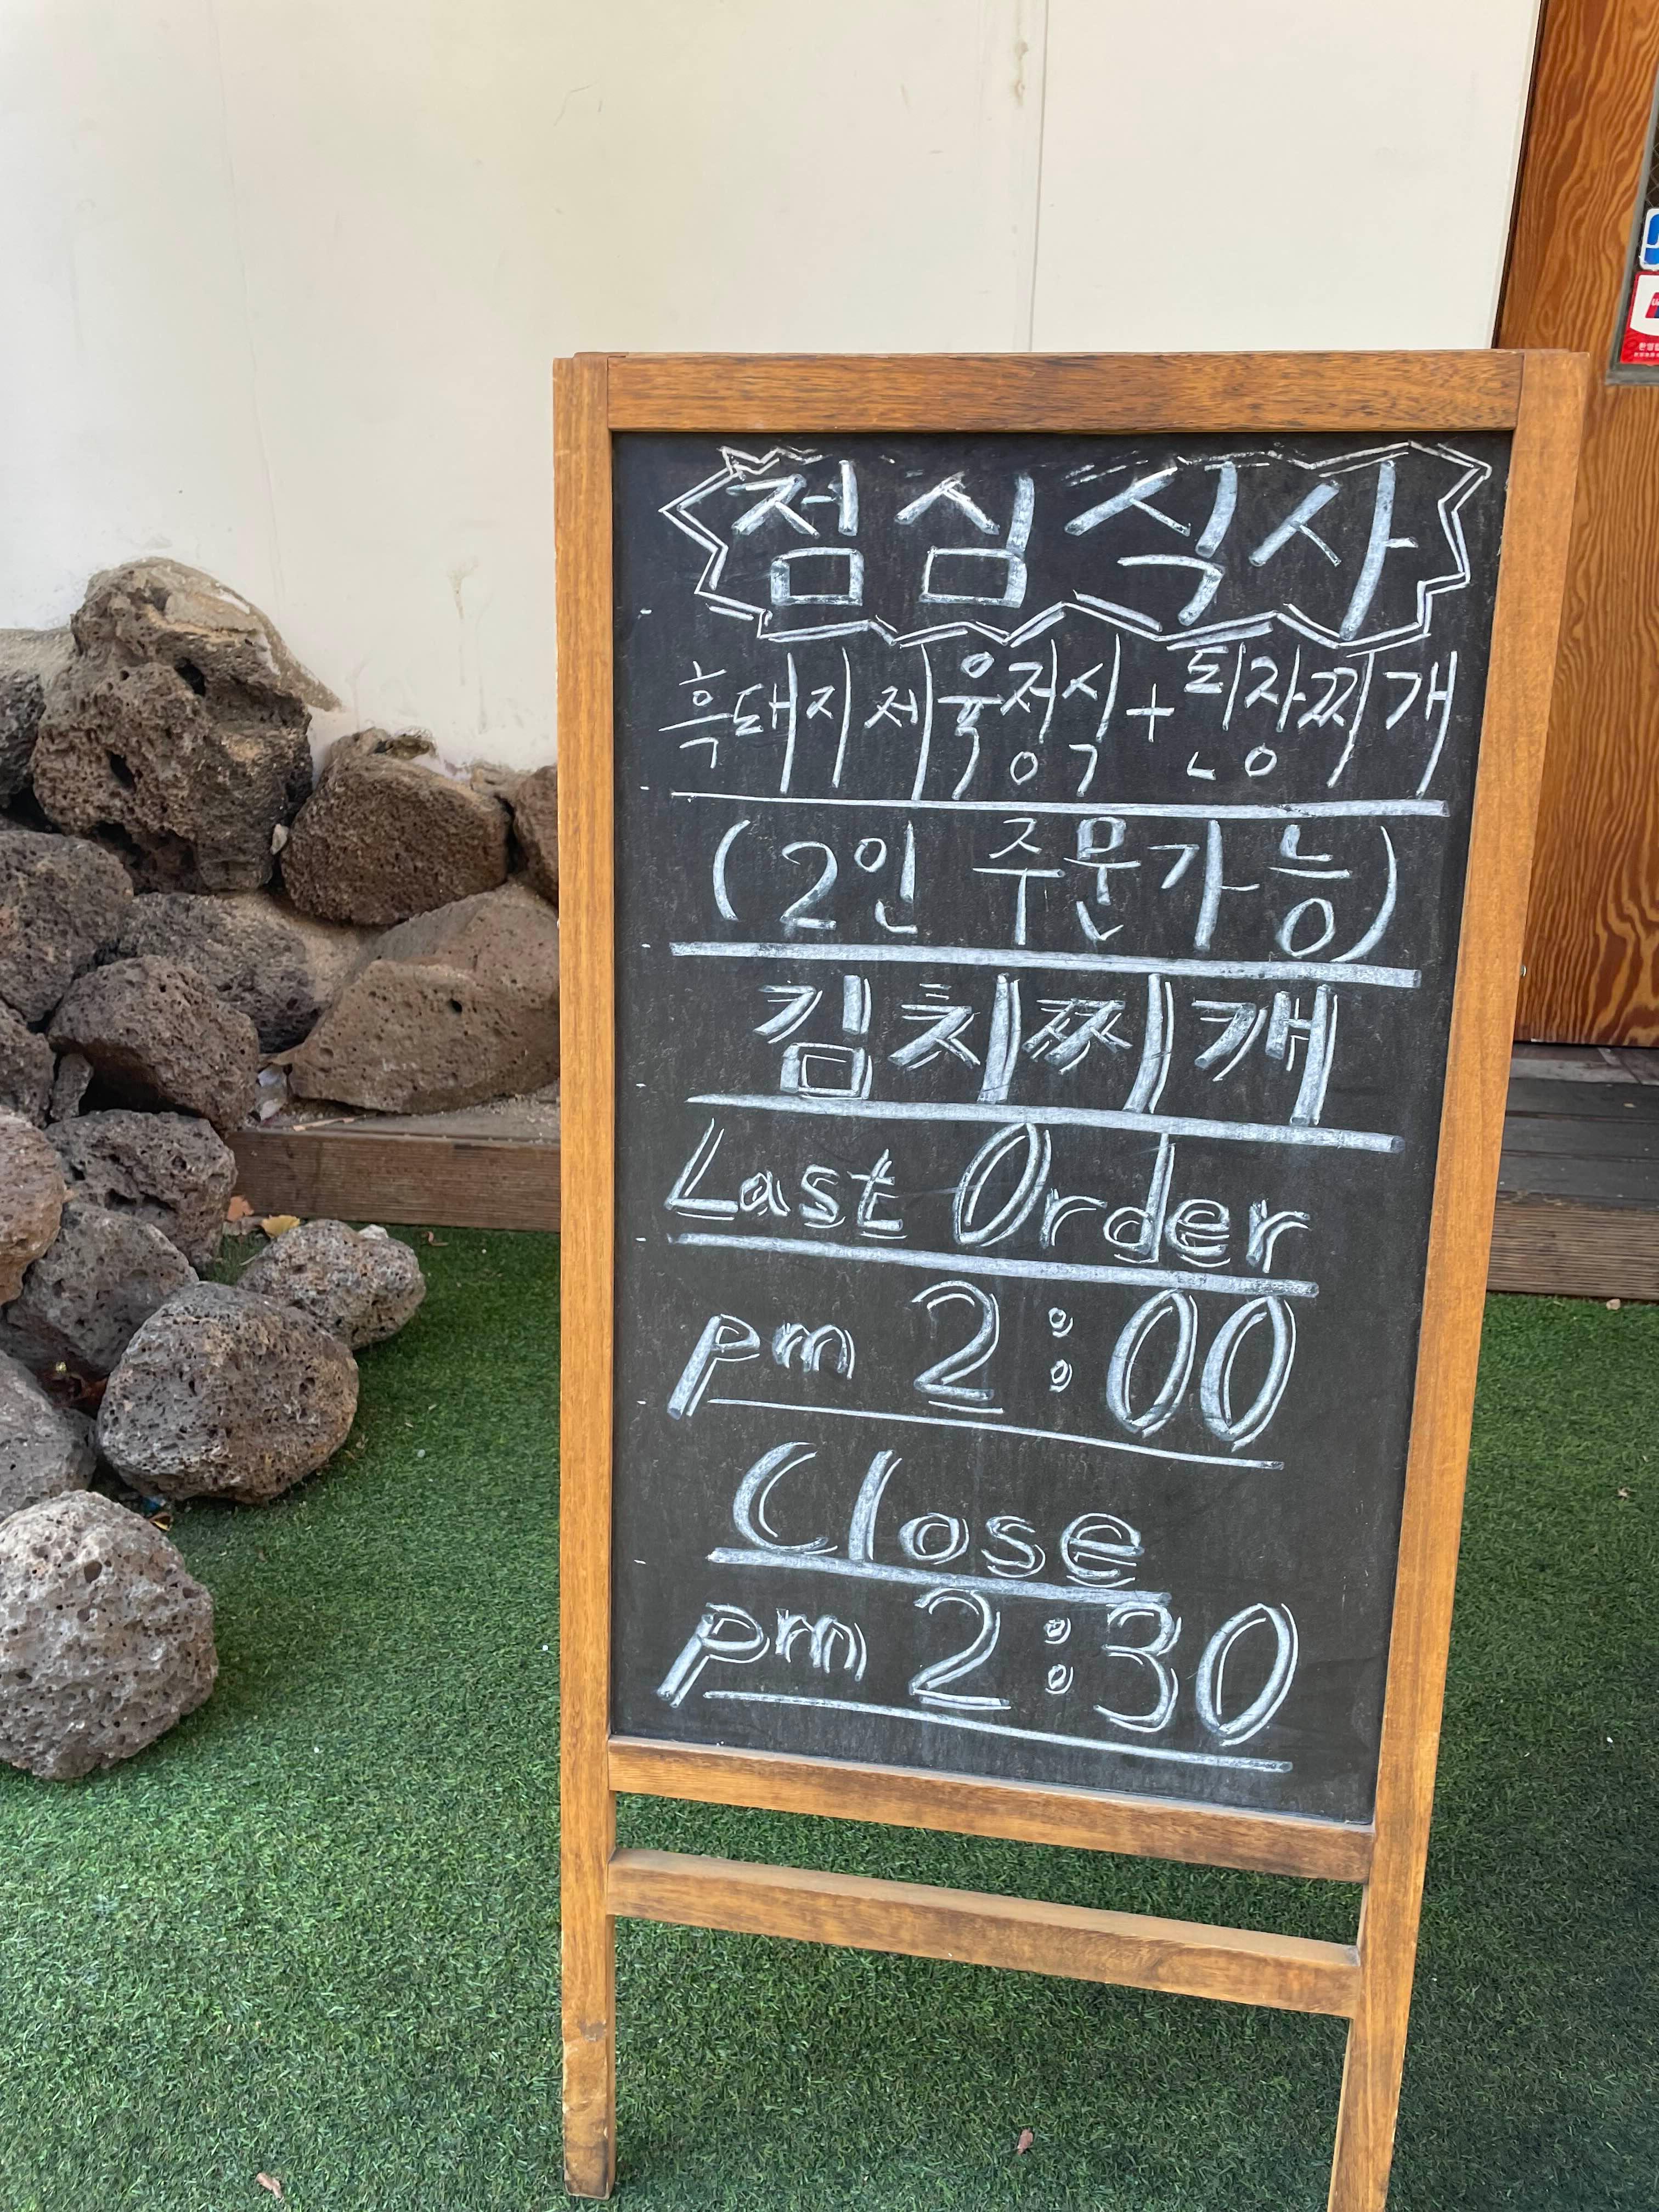 점심식사
흑돼지제육정식+된장찌개
(2인 주문가능)
김치찌개
Last Order
pm 2:00
Close
pm 2:30